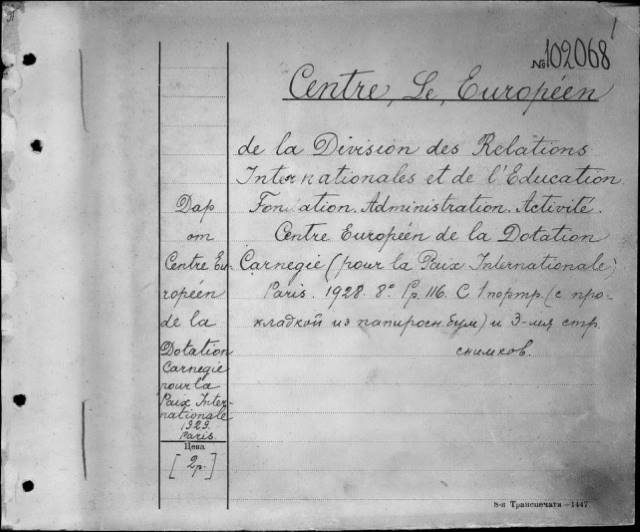 №102068
Centre, Le, Européen
de la Division des Relations
Internationales et de l'Education.
Fon ation. Administration. Activité.
Centre Européen de la Dotation
Carnegie (pour la Paix Internationale)
Paris. 1928. 8° 116. С 1 портр. (с про-
кладкой из папиросн. бум.) и 3-мя стр.
снимков.
Дар
от
Centre Eu-
ropéen
de la
Dotation
Carnegie
pour la
Paix Inter-
nationale
1929.
Paris.
Цена
[2р.]
8-я Транспечати—1447